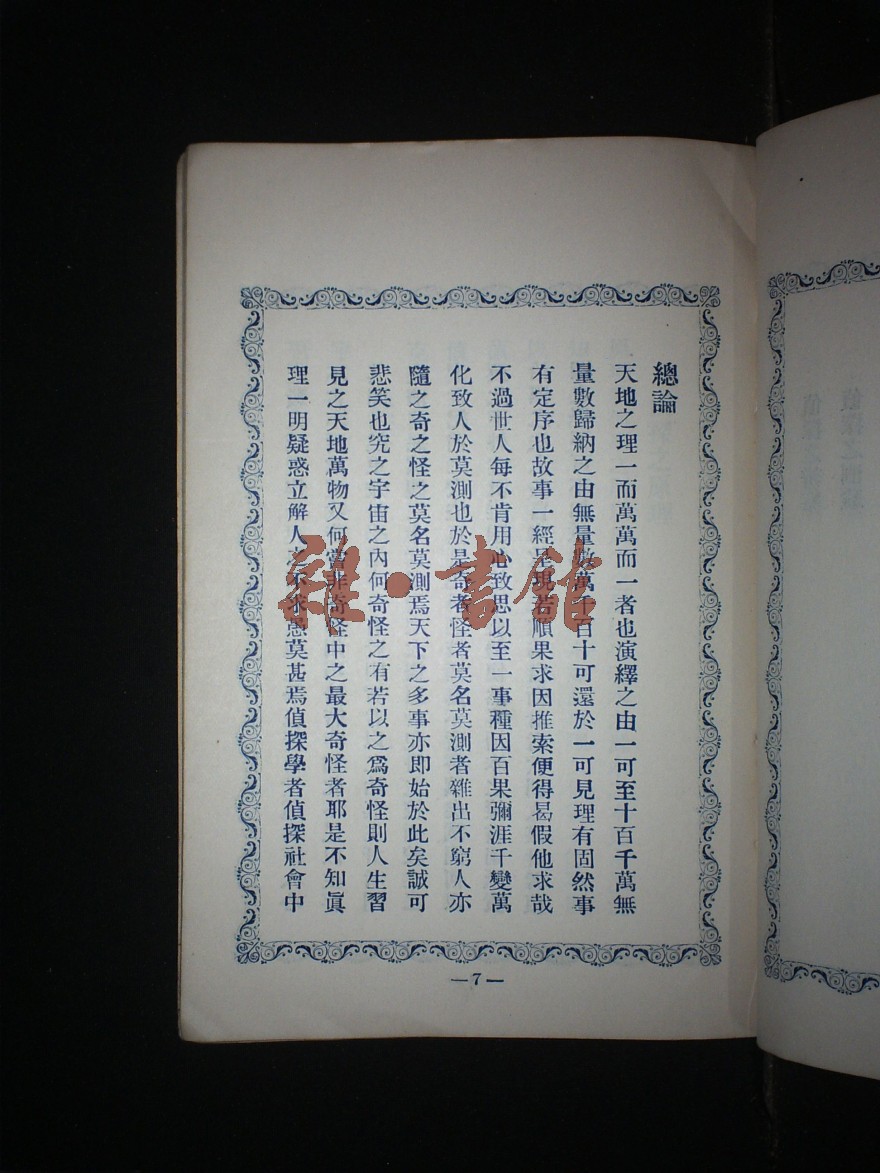 總論
天地之理一而萬萬而一者也演繹之由一可至十百千萬無
量數歸納之由無量數萬千百十可還於一可見理有固然事
有定序也故事一經呈現若順果求因推索便得曷假他求哉
不過世人每不肯用心致思以至一事種因百果彌涯千變萬
化致人於莫測也於是奇者怪者莫名莫測者雜出不窮人亦
隨之奇之怪之莫名莫測焉天下之多事亦即始於此矣誠可
悲笑也究之宇宙之內何奇怪之有若以之爲奇怪則人生習
見之天地萬物又何嘗非奇怪中之最大奇怪者耶是不知眞
理一明疑惑立解人之不求愚莫甚焉偵探學者偵探社會中
—7—
雜·書館